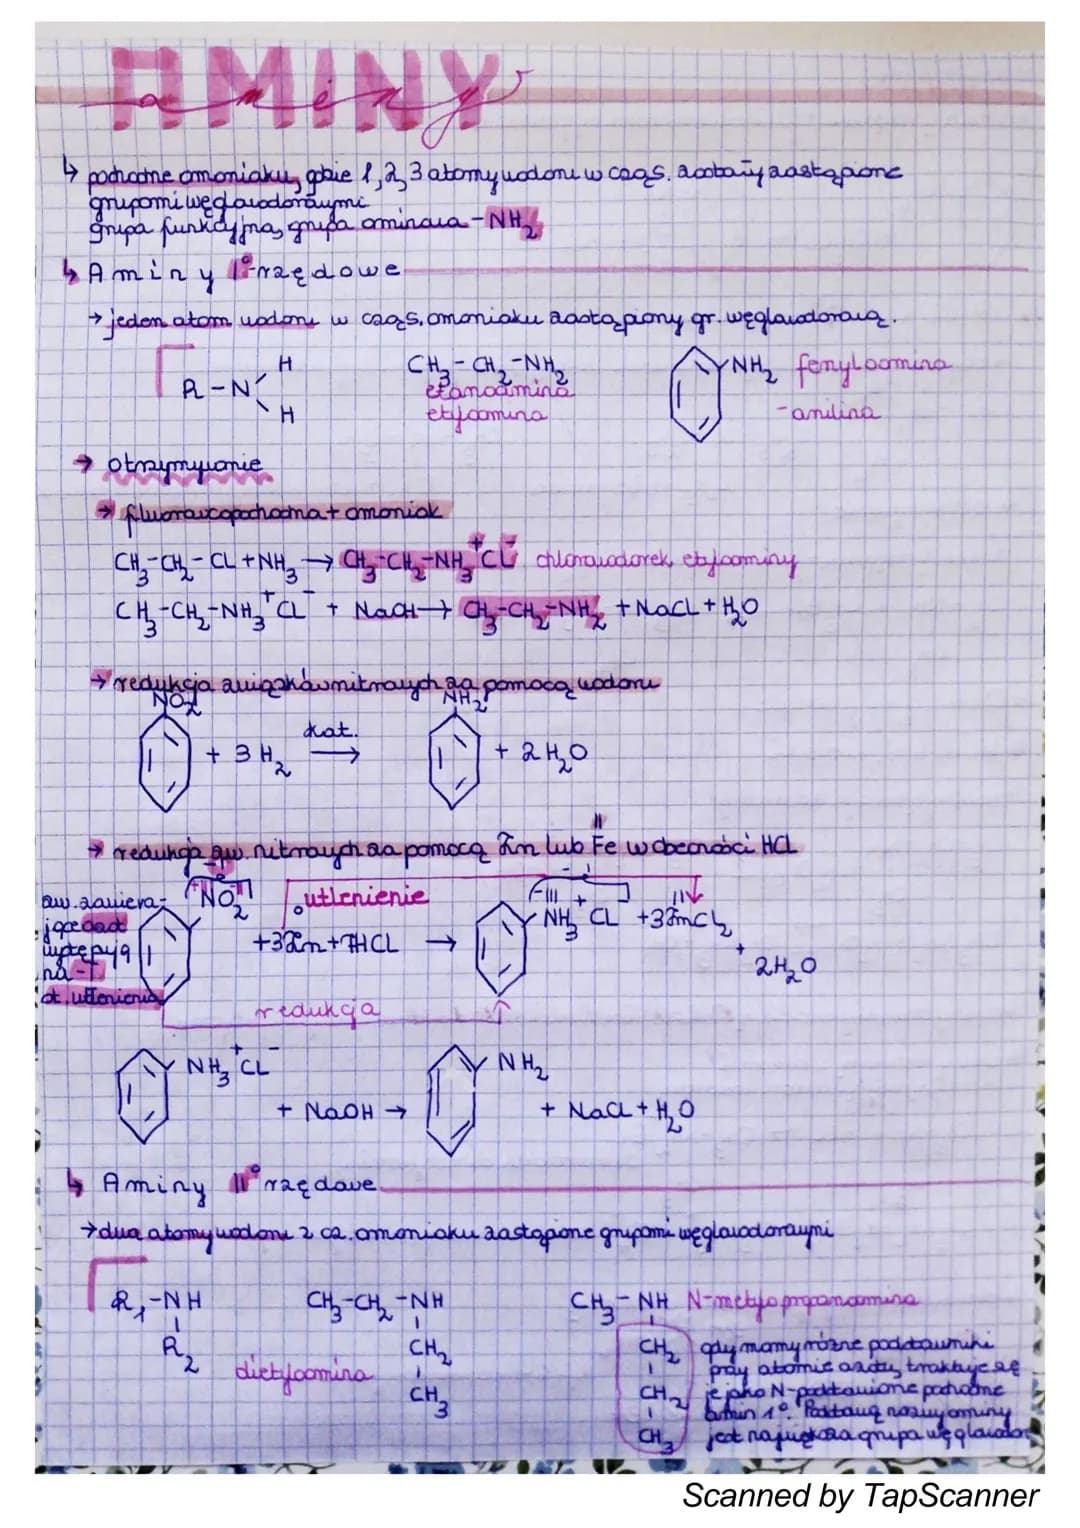 AMINY
aminy
↳ pochodne amoniaku, gdzie 1, 2, 3 atomy wodoru w cząs. zostały zastąpione
grupami węglowodorowymi
grupa funkcyjna, grupa aminowa -NH₂
↳ Aminy I°-rzędowe
→ jeden atom wodoru w cząs. amoniaku zastąpiony gr. węglowodorową.
R-N H H
CH₃-CH₂-NH₂
etanoamina
etyloamina
NH₂ fenyloamina
-anilina
→ otrzymywanie
→ fluorowcopochodna + amoniak
CH₃-CH₂-CL + NH₃ → CH₃-CH₂-NH₃⁺CL⁻ chlorowodorek etyloaminy
CH₃-CH₂-NH₃⁺CL⁻ + NaOH → CH₃-CH₂-NH₂ + NaCL + H₂O
→ redukcja związków nitrowych za pomocą wodoru
NO₂ NH₂
+ 3H₂ kat. → + 2H₂O
II
→ redukcja zw. nitrowych za pomocą Zn lub Fe w obecności HCL
zw. zawiera-
jące azot
występują
na -I
st. utlenienia
NO₂ utlenienie -III NH₃⁺CL⁻ II
+3Zn+7HCL → +3ZnCl₂
+
2H₂O
redukcja
NH₃⁺CL⁻ NH₂
+ NaOH → + NaCl + H₂O
↳ Aminy II°rzędowe
→ dwa atomy wodoru z cz. amoniaku zastąpione grupami węglowodorowymi
R₁-NH
R₂
CH₃-CH₂-NH
CH₂
CH₃
dietyloamina
CH₃-NH N-metylopropanoamina
CH₂
CH₂
CH₃
gdy mamy różne podstawniki
przy atomie azotu, traktuje się
je jako N-podstawione pochodne
amin 1°. Podstawą nazwy aminy
jest największa grupa węglowodor
Scanned by TapScanner